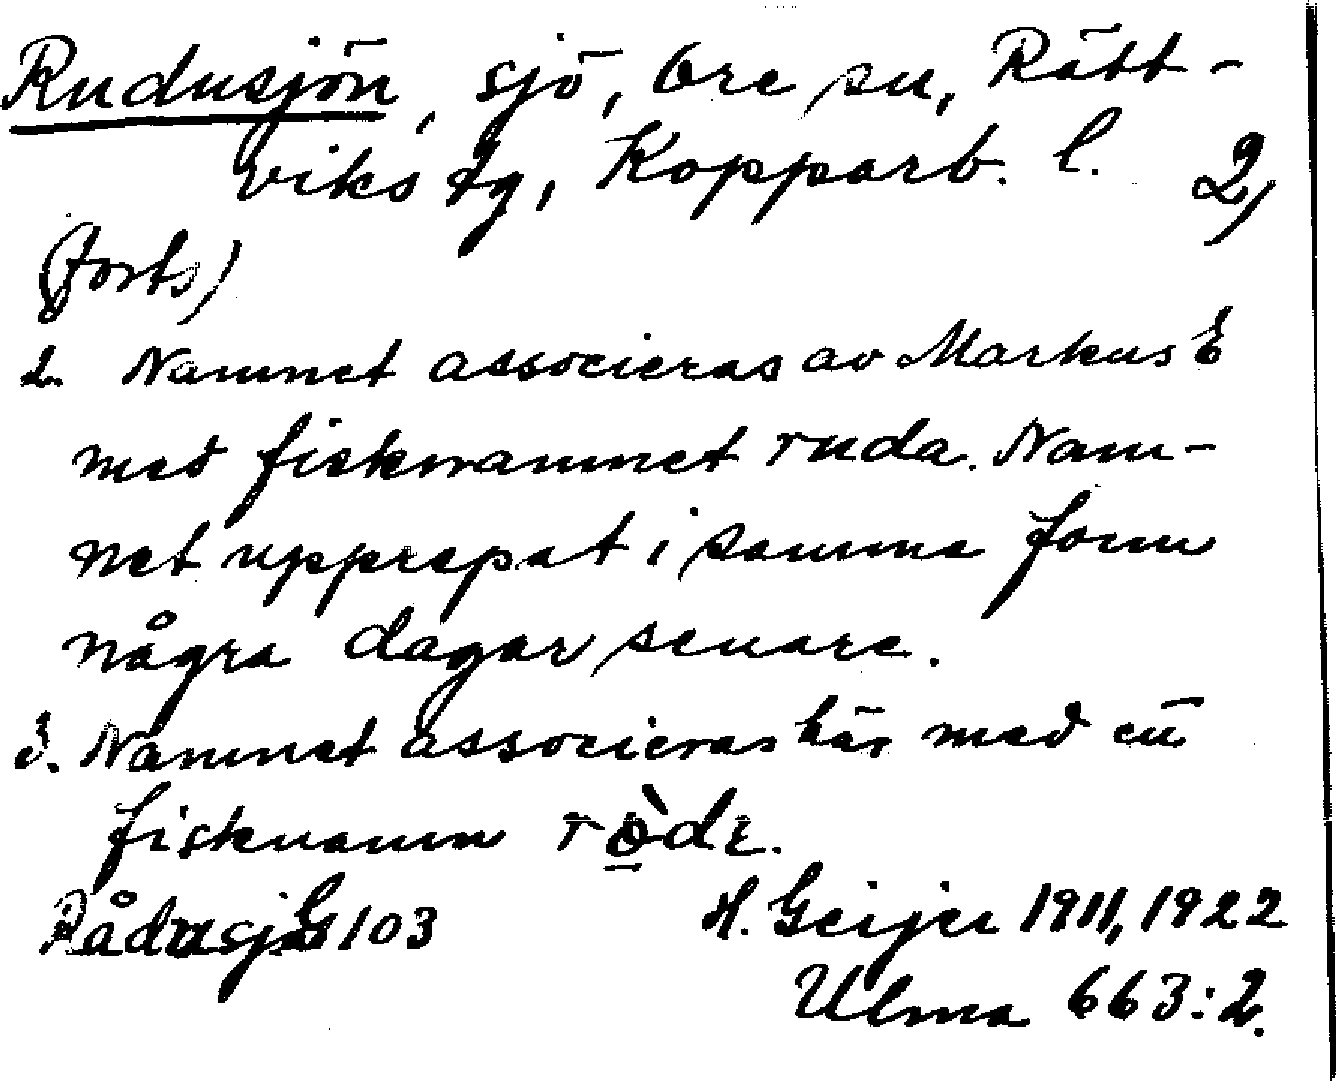 Rudusjön, sjö, Ore sn, Rätt-
viks tg, Kopparb. l. 2)
(forts)
2. Namnet associeras av Markus E
med fisknamnet ruda. Nam-
net upprepat i samma form
några dagar senare.
3. Namnet associeras här med ett
fisknamn rò̱dɛ.
Rådusj. G 103 H. Geijer 1911, 1922
Ulma 663:2.